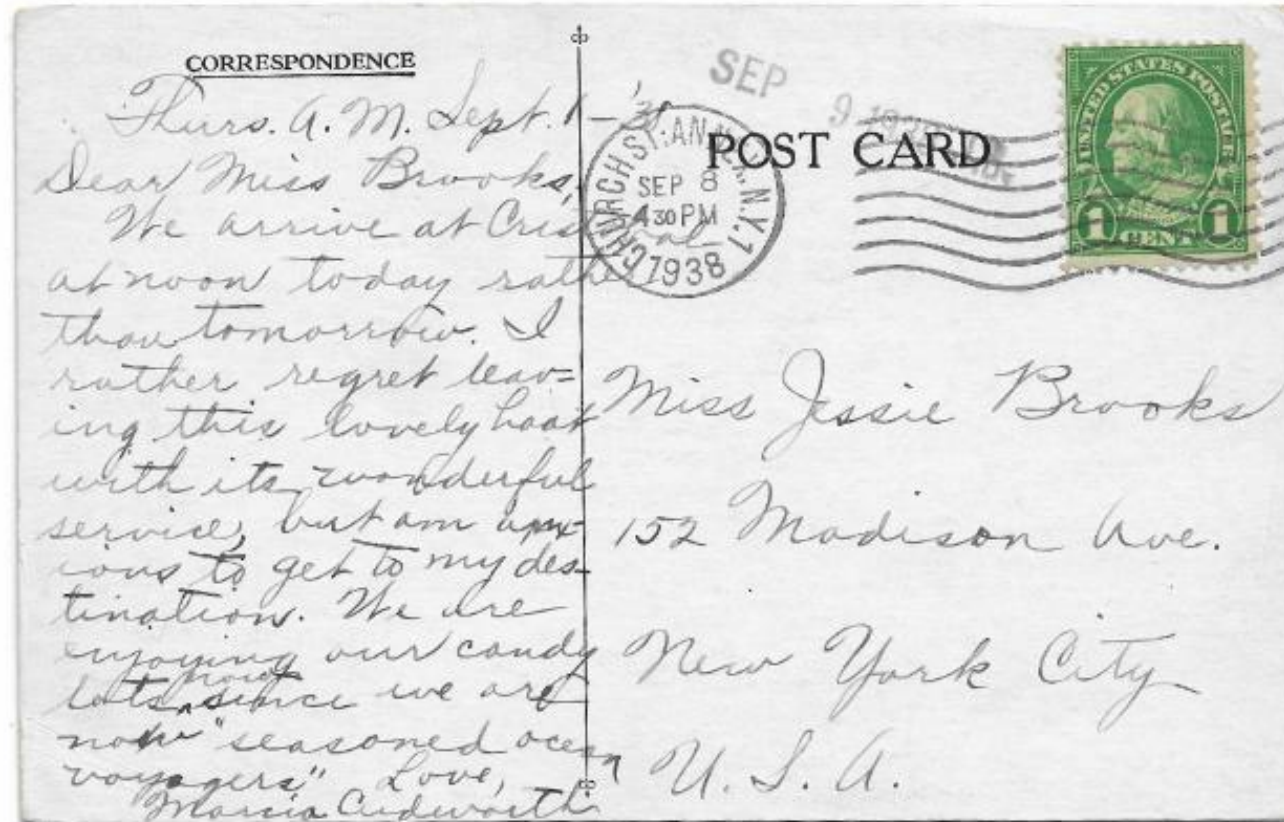 CORRESPONDENCE
Thurs. A.M. Sept. 1 - '38
Dear Miss Brooks,
We arrive at Cristobal
at noon today rather
than tomorrow. I
rather regret leav=
ing this lovely boat
with its wonderful
service, but am anx-
ious to get to my des-
tination. We are
enjoying our candy
lots now since we are
now "seasoned ocean
voyagers". Love,
Marcia Cudworth
SEP 9 1938
CHURCH ST. ANNEX. N.Y. 1
SEP 8
4 30 PM
1938
POST CARD
UNITED STATES POSTAGE
1 CENT 1
Miss Jessie Brooks
152 Madison Ave.
New York City
U. S. A.